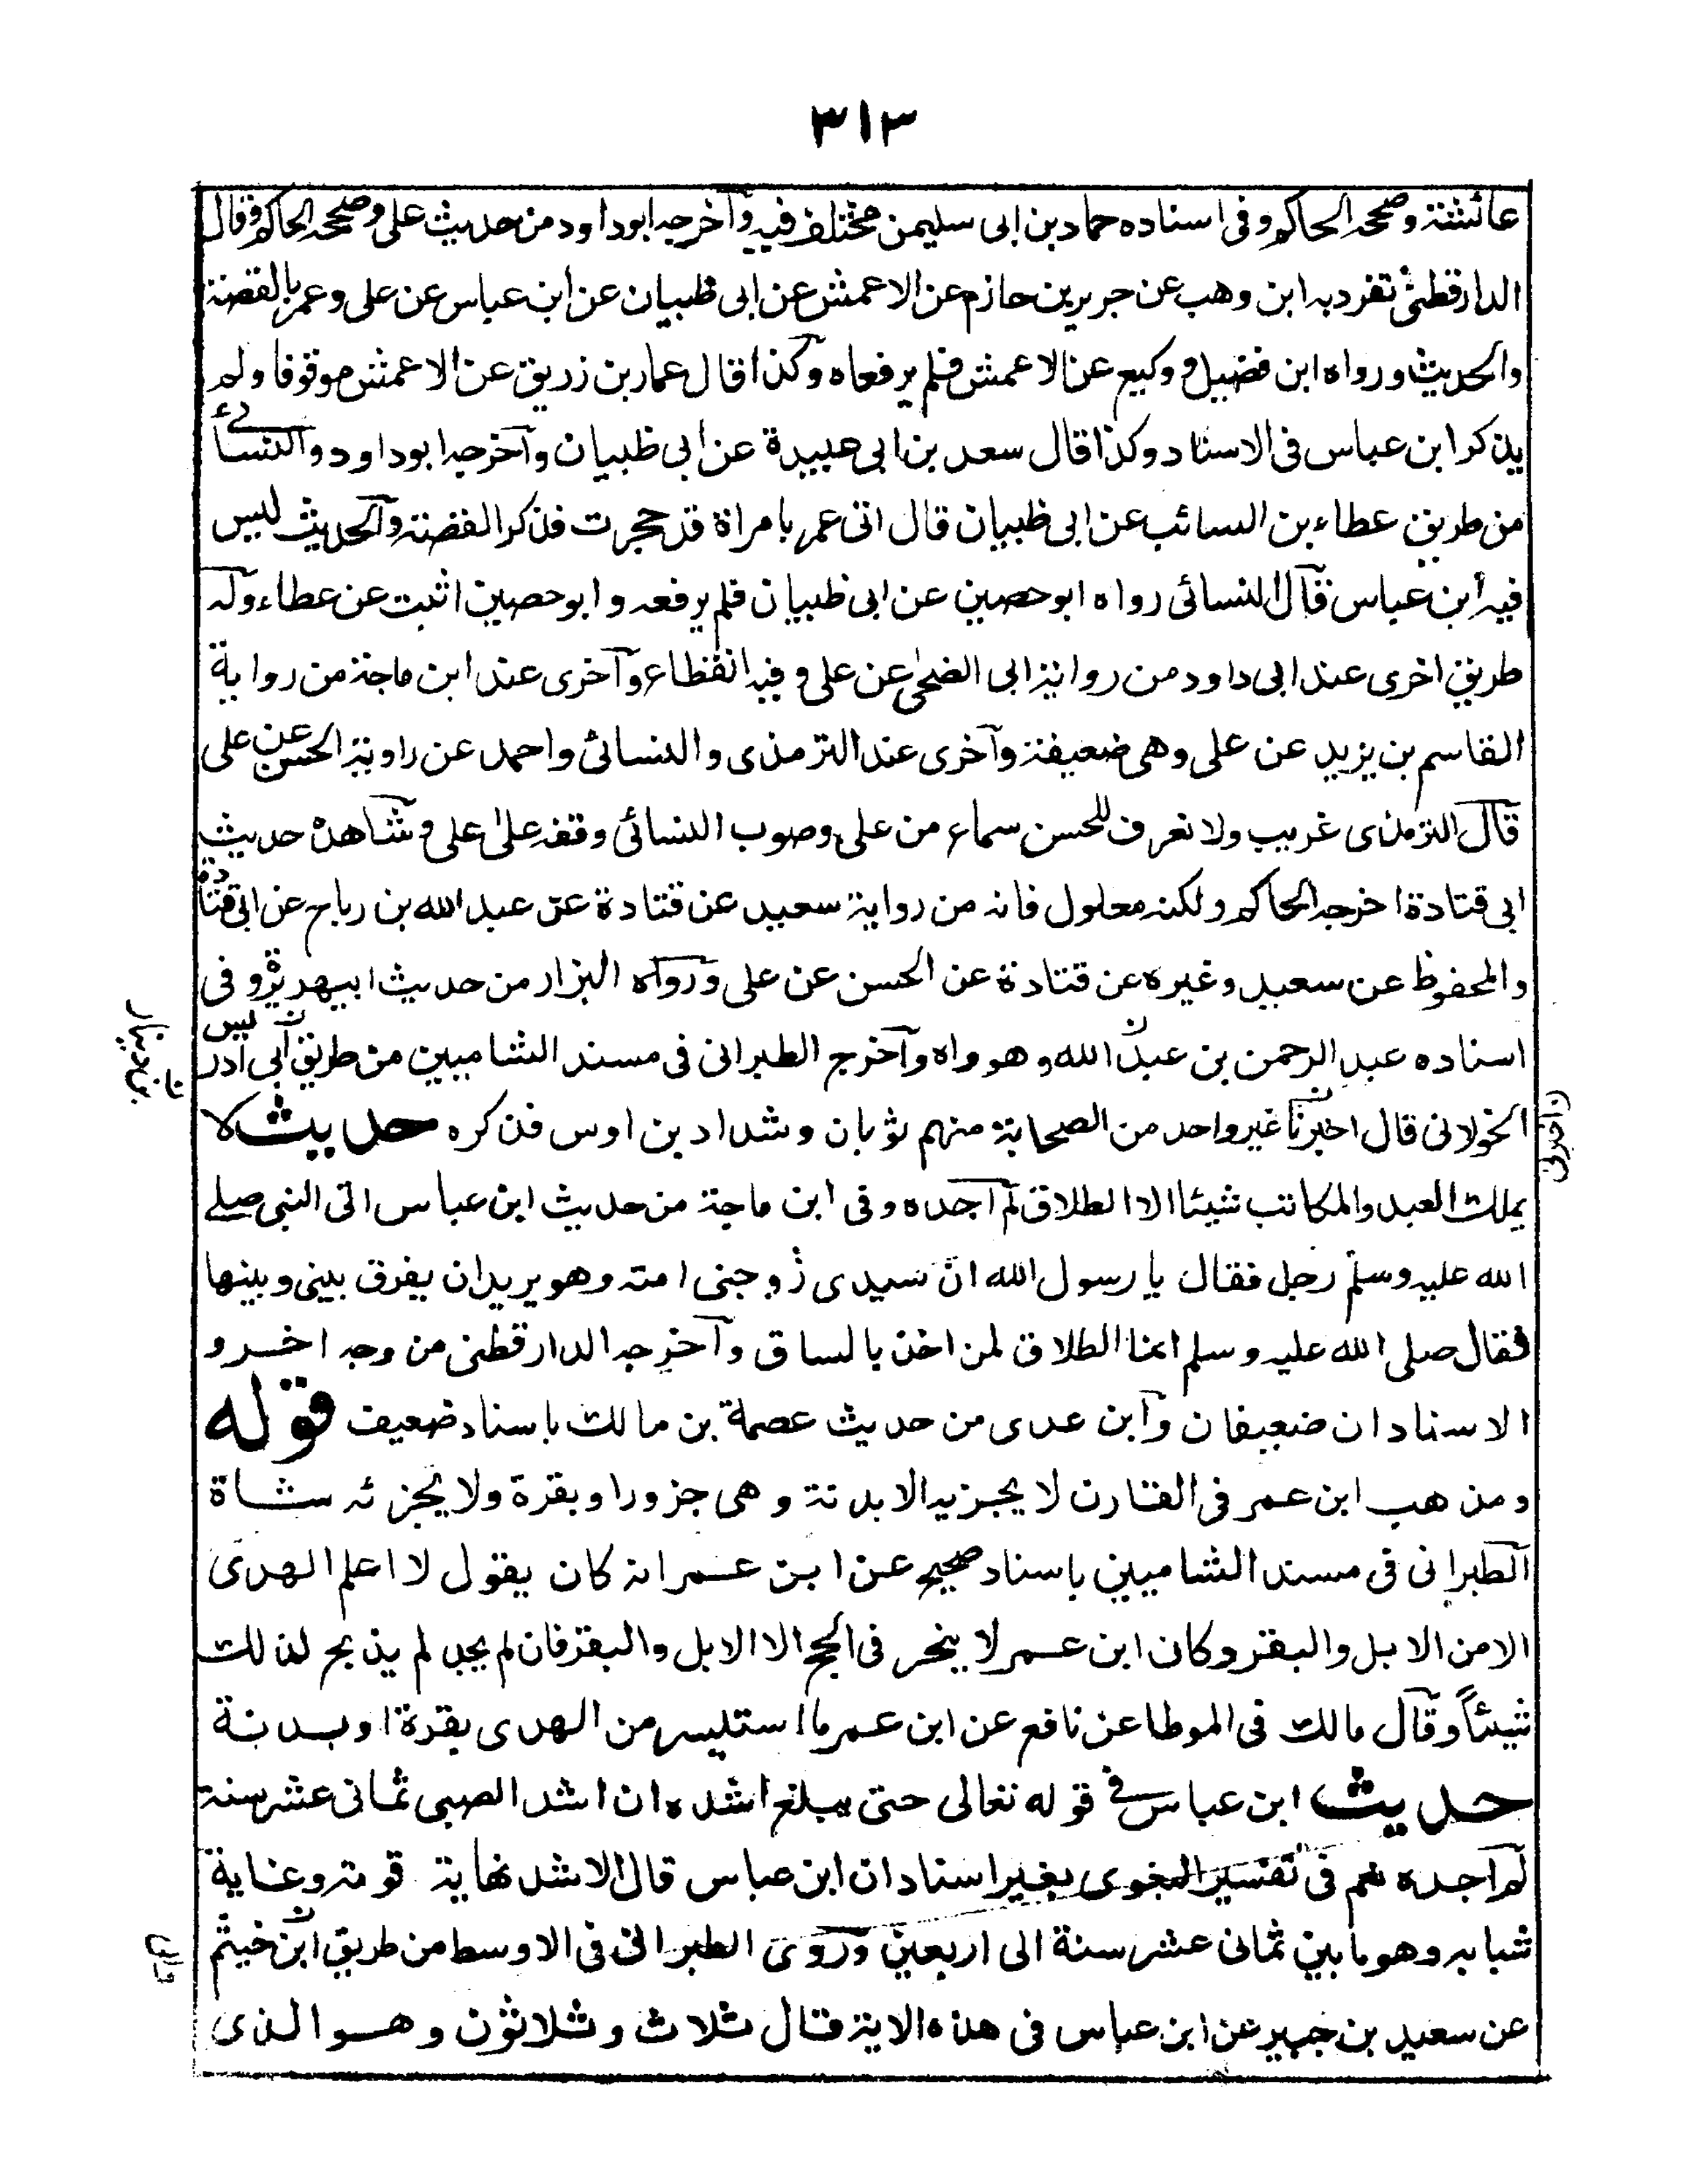 ٣١٣
عائشة وصححه الحاكم وفى اسناده حماد بن ابى سليمن مختلف فيه وآخرجه ابوداود من حديث على وصححه الحاكم وقال
الدارقطنى تفرد به ابن وهب عن جرير بن حازم عن الاعمش عن ابى ظبيان عن ابن عباس عن على وعمر بالقصة
والحديث ورواه ابن فضيل ووكيع عن الاعمش فلم يرفعاه وكذا قال عمار بن زريق عن الاعمش موقوفا ولم
يذكر ابن عباس فى الاسناد وكذا قال سعد بن ابى عبيدة عن ابى ظبيان وآخرجه ابوداود والنسائے
من طريق عطاء بن السائب عن ابى ظبيان قال اتى عمر بامراة قد حجرت فذكر القصة والحديث ليس
فيه ابن عباس قآل النسائى رواه ابوحصين عن ابى ظبيان فلم يرفعه وابوحصين اثبت عن عطاء وله
طريق اخرى عند ابى داود من رواية ابى الضحى عن على وفيه انقطاع وآخرى عند ابن ماجة من رواية
القاسم بن يزيد عن على وهى ضعيفة وآخرى عند الترمذى والنسائى واحمد عن راوية الحسن عن على
قآل الترمذى غريب ولا نعرف للحسن سماع من على وصوب النسائى وقفه على على وشاهده حديث
ابى قتادة اخرجه الحاكم ولكنه معلول فانه من رواية سعيد عن قتادة عن عبد الله بن رباح عن ابى قتادة
والمحفوظ عن سعيد وغيره عن قتادة عن الحسن عن على ورواه البزار من حديث ابيهريرة وفى
اسناده عبد الرحمن بن عبد الله وهو واه وآخرج الطبرانى فى مسند الشاميين من طريق آبى ادريس
الخولانى قال اخبرنا غير واحد من الصحابة منهم ثوبان وشداد بن اوس فذكره حديث لا
يملك العبد والمكاتب شيئا الا الطلاق لم آجده وفى ابن ماجة من حديث ابن عباس اتى النبى صلے
الله عليه وسلم رجل فقال يا رسول الله ان سيدى زوجنى امته وهو يريد ان يفرق بينى وبينها
فقال صلى الله عليه وسلم انما الطلاق لمن اخذ بالساق وآخرجه الدارقطنى من وجه اخر و
الاسنادان ضعيفان وآبن عدى من حديث عصمة بن مالك باسناد ضعيف قوله
ومذهب ابن عمر فى القارن لا يجزيه الا بدنة وهى جزور او بقرة ولا يجزئه شاة
آلطبرانى فى مسند الشاميين باسناد صحيح عن ابن عمر انه كان يقول لا اعلم الهدى
الا من الابل والبقر وكان ابن عمر لا ينحر فى الحج الا الابل والبقر فان لم يجد لم يذبح لذلك
شيئاً وقآل مالك فى الموطا عن نافع عن ابن عمر ما استيسر من الهدى بقرة او بدنة
حديث ابن عباس فى قوله تعالى حتى يبلغ اشده ان اشد الصبى ثمانى عشر سنة
لم آجده نعم فى تفسير البغوى بغير اسناد ان ابن عباس قال الاشد نهاية قوته وغاية
شبابه وهو ما بين ثمانى عشر سنة الى اربعين وروى الطبرانى فى الاوسط من طريق ابن خيثم
عن سعيد بن جبير عن ابن عباس فى هذه الاية قال ثلاث وثلاثون وهو الذى
ن اخبرنى